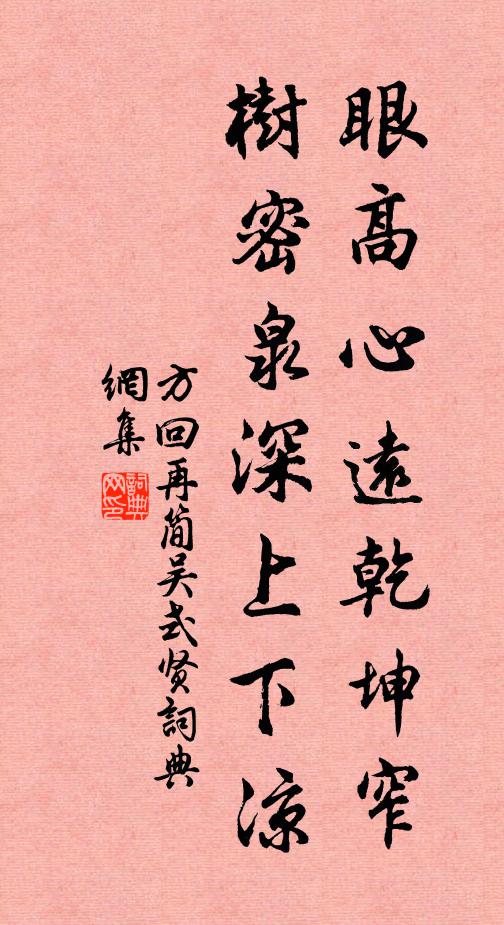 眼高心遠乾坤窄
樹密泉深上下涼
方回再簡吴式贤詞典
網集
詞典网印